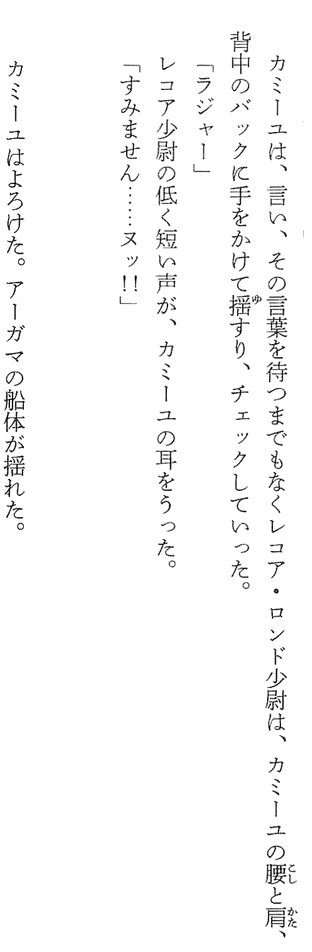 カミーユは、言い、その言葉を待つまでもなくレコア・ロンド少尉は、カミーユの腰と肩、
背中のバックに手をかけて揺すり、チェックしていった。
「ラジャー」
レコア少尉の低く短い声が、カミーユの耳をうった。
「すみません……ヌッ!!」
カミーユはよろけた。アーガマの船体が揺れた。